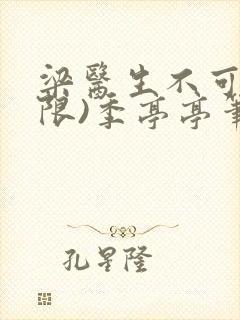 梁醫生不可
限)季亭亭筆
孔星隆